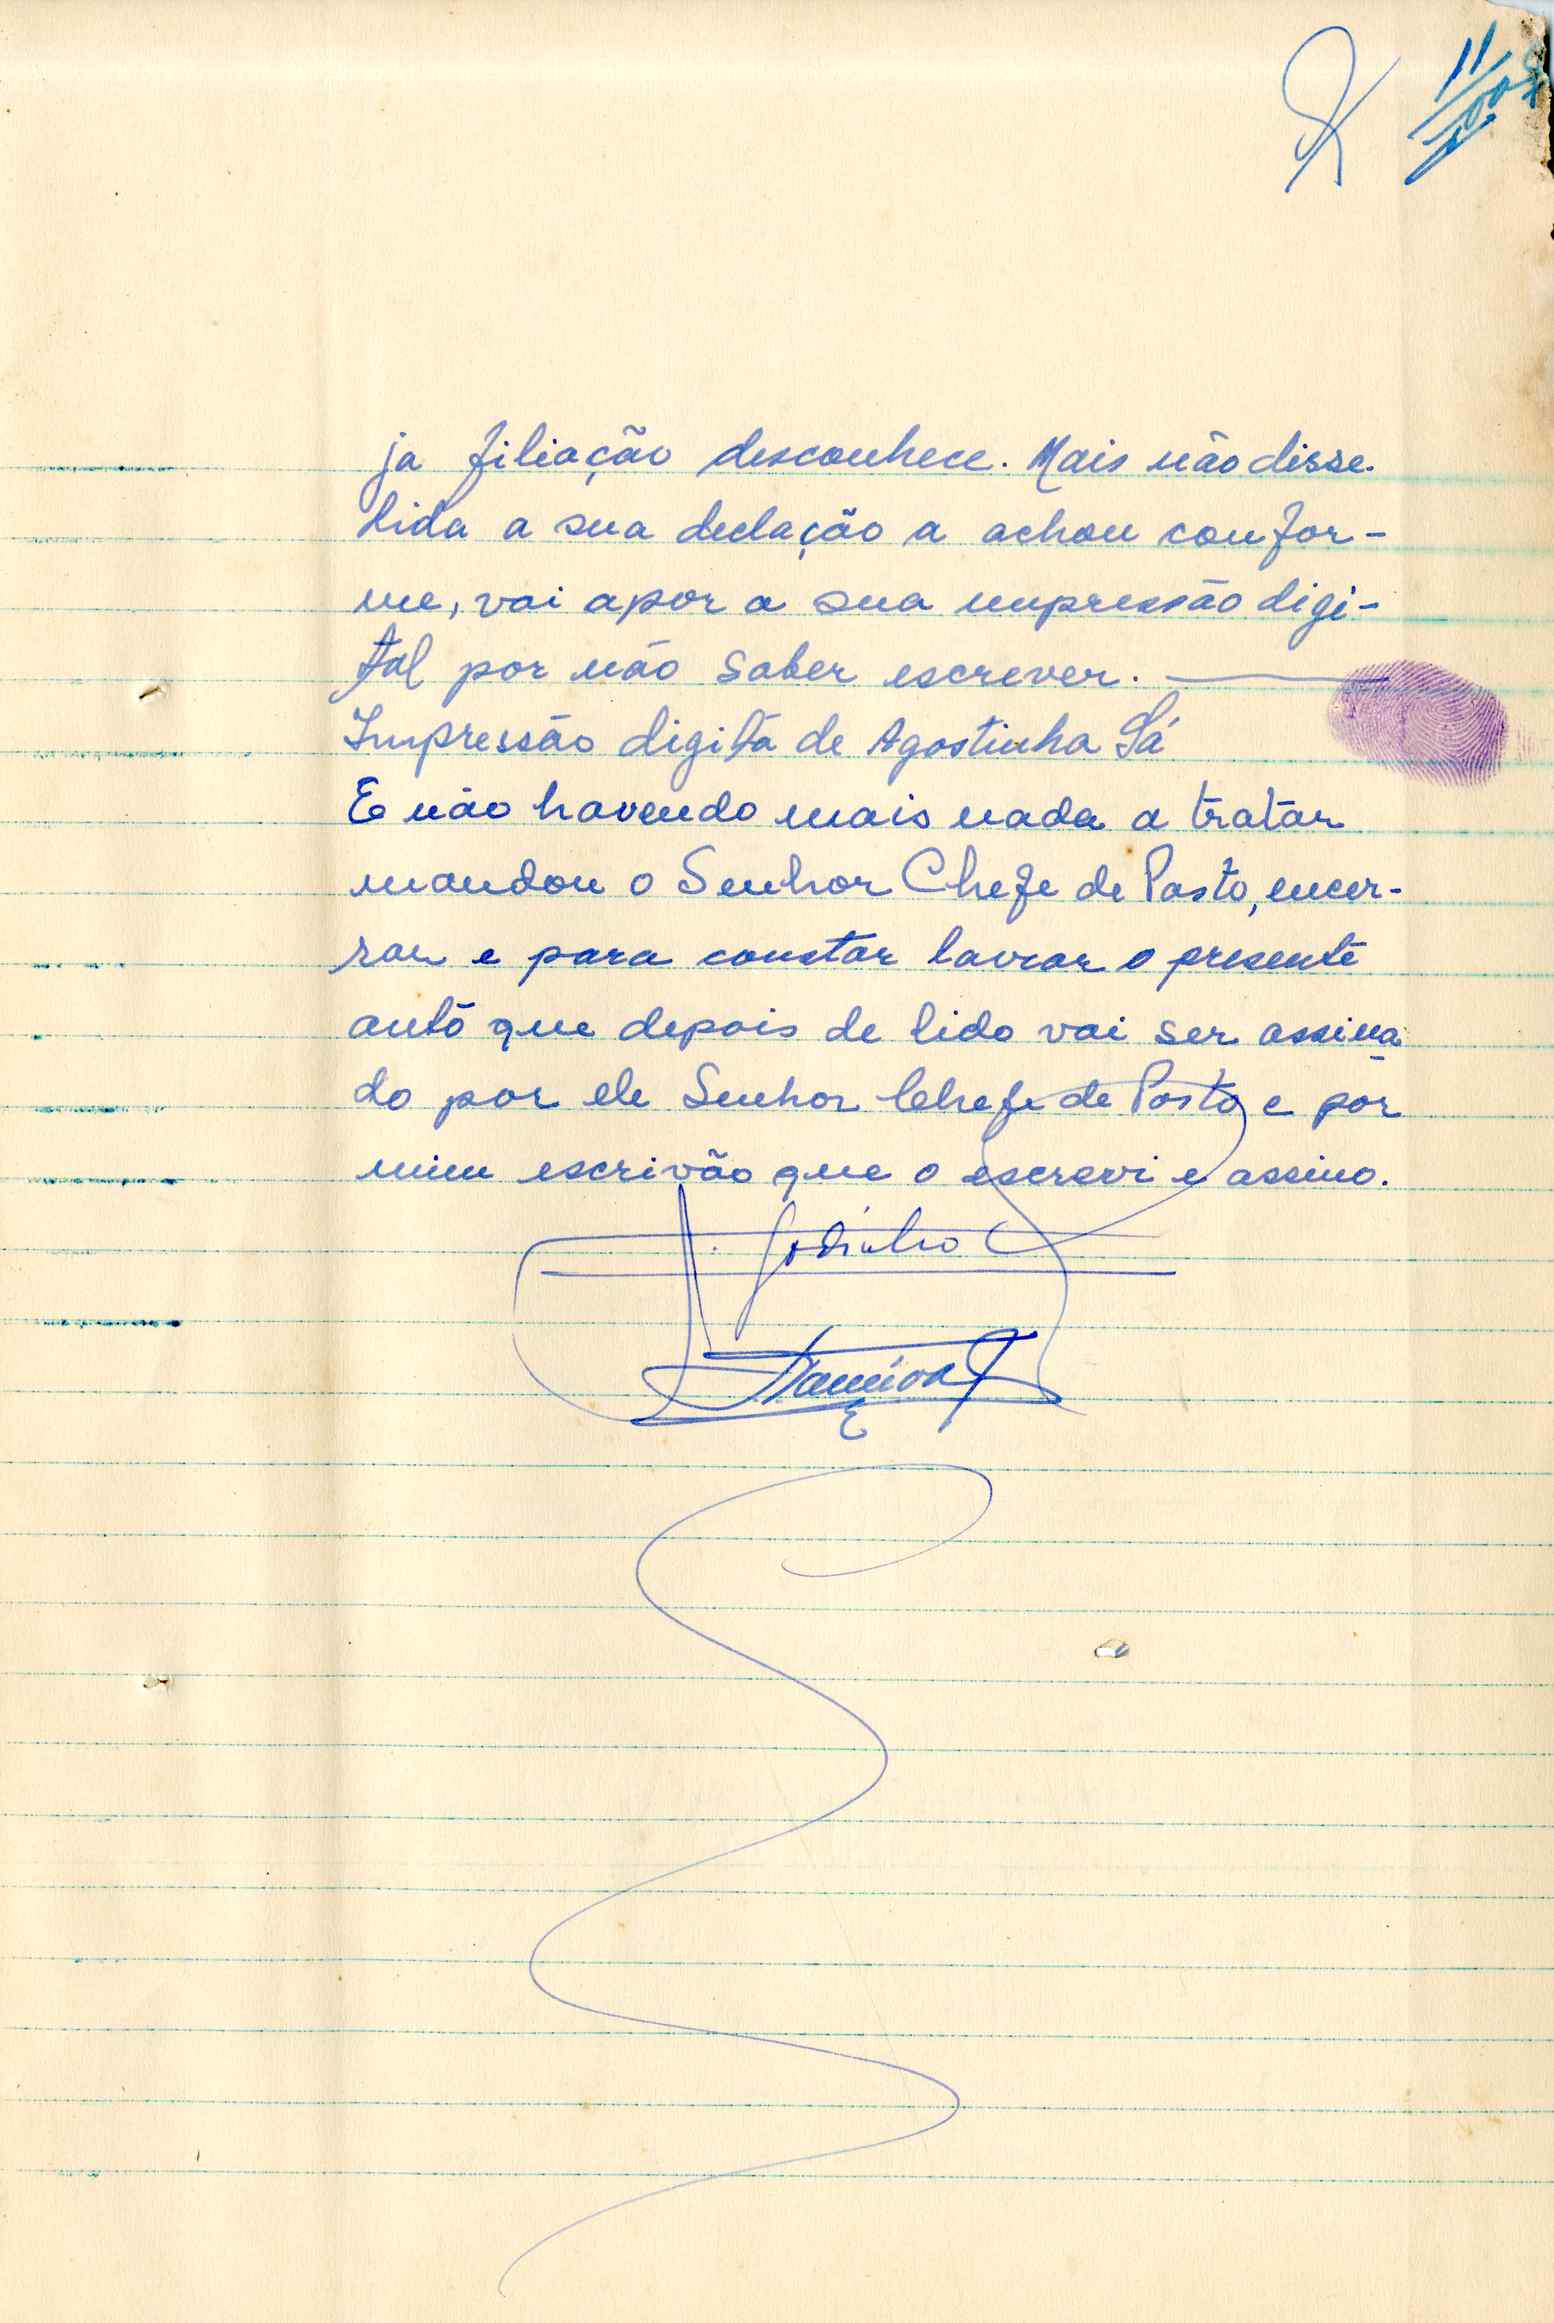 11
ja filiação desconhece. Mais não disse.
Lida a sua declação a achou confor-
me, vai apor a sua impressão digi-
tal por não saber escrever.
Impressão digitá de Agostinha Sá
E não havendo mais nada a tratar
mandou o Senhor Chefe de Posto, encer-
rar e para constar lavrar o presente
auto que depois de lido vai ser assina
do por ele Senhor Chefe de Posto e por
mim escrivão que o escrevi e assino.
Godinho